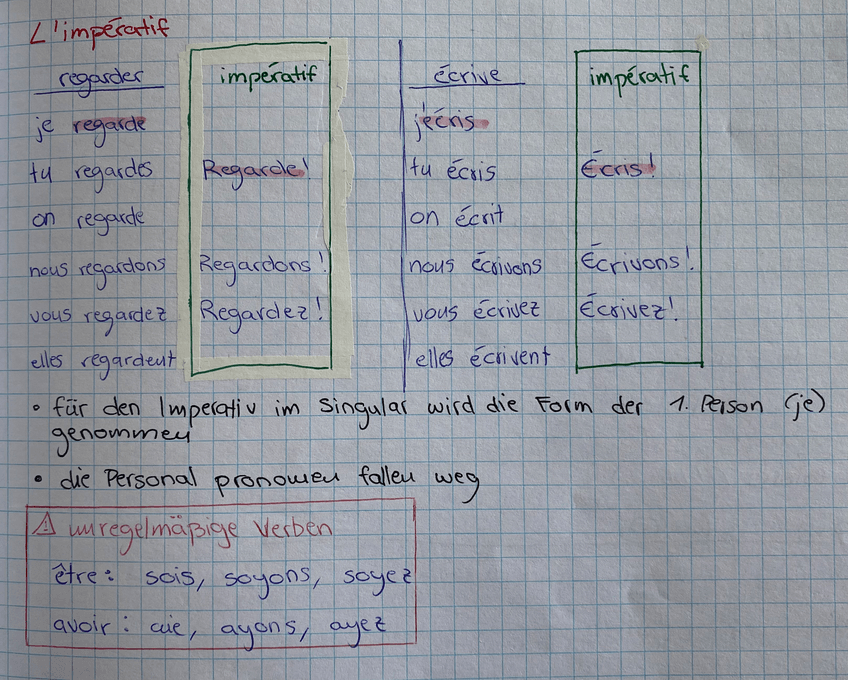 L'impératif
regarder impératif écrive impératif
je regarde j'écris
tu regardes Regarde! tu écris Écris!
on regarde on écrit
nous regardons Regardons! nous écrivons Écrivons!
vous regardez Regardez! vous écrivez Écrivez!
elles regardent elles écrivent
• für den Imperativ im Singular wird die Form der 1. Person (je)
genommen
• die Personal pronomen fallen weg
⚠ unregelmäßige Verben
être: sois, soyons, soyez
avoir: aie, ayons, ayez